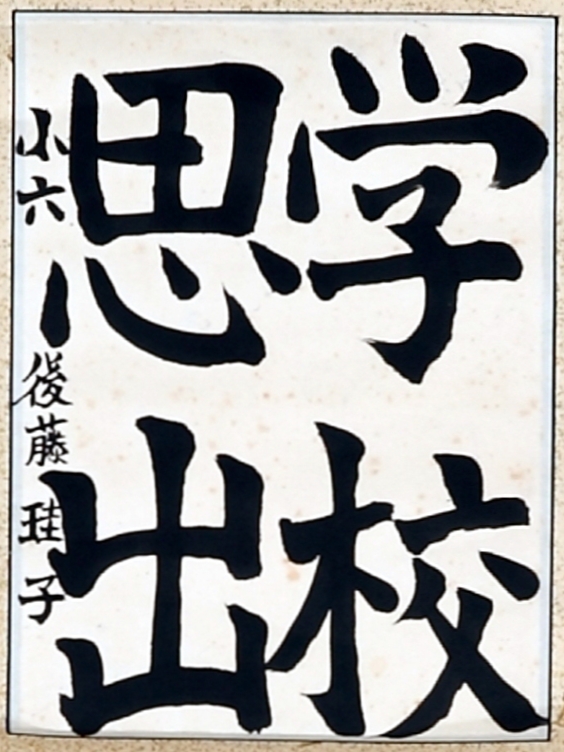 学校
思出
小六 後藤珪子